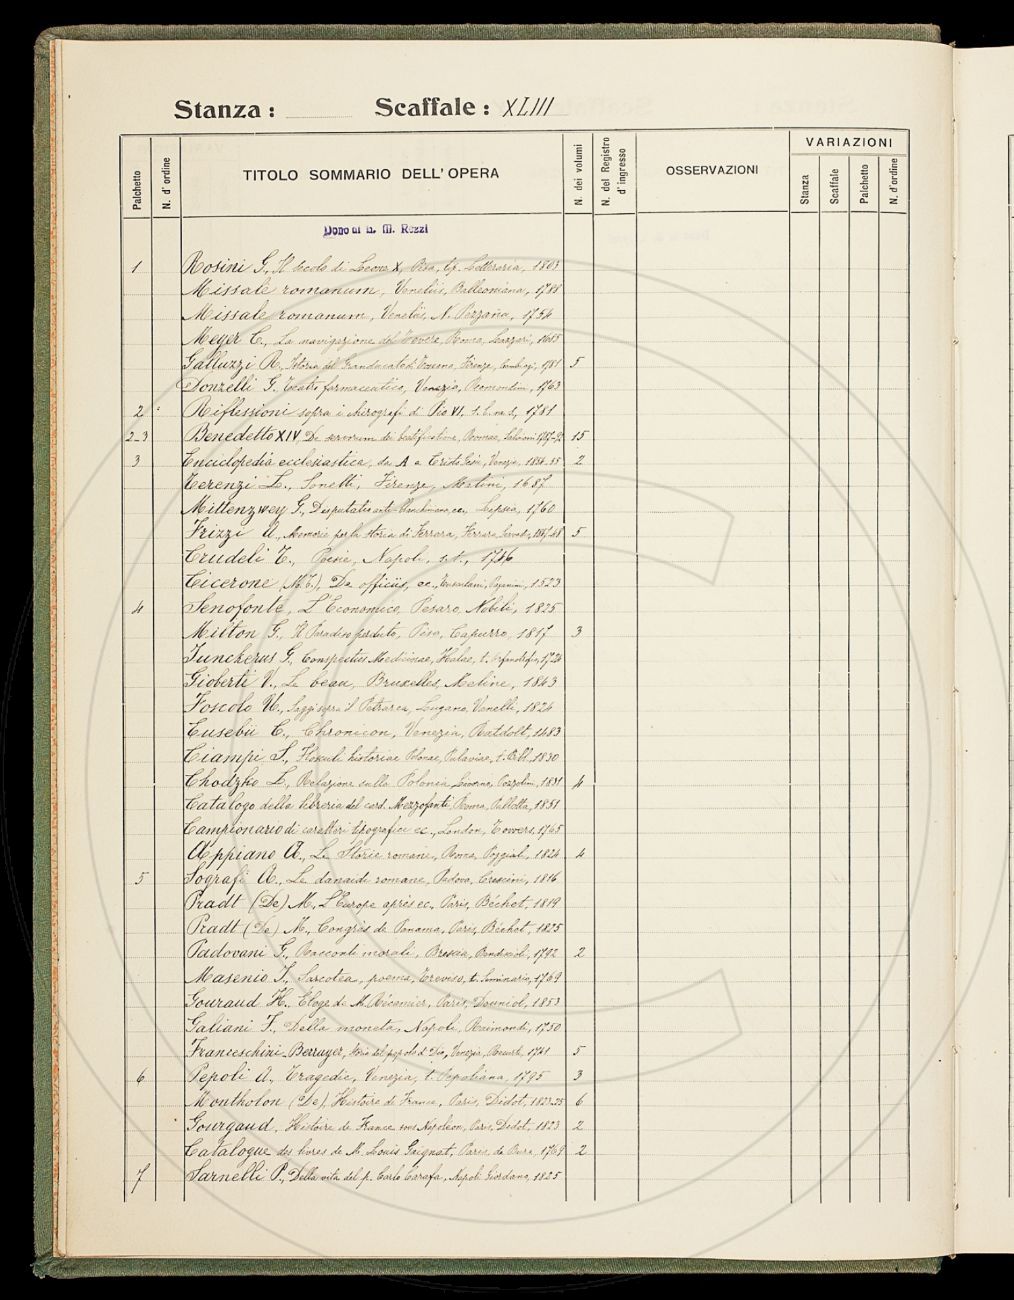 Stanza : Scaffale : XLIII
Palchetto N. d'ordine TITOLO SOMMARIO DELL'OPERA N. dei volumi N. del Registro d'ingresso OSSERVAZIONI VARIAZIONI Stanza Scaffale Palchetto N. d'ordine
Dono di M. Rezzi
1 Rosini G., Il secolo di Leone X, Pisa, tip. Letteraria, 1803
Missale romanum, Venetiis, Balleoniana, 1788
Missale romanum, Venetiis, N. Pezzana, 1754
Meyer C., La navigazione del Tevere, Roma, Lazzari, 1685
Galluzzi R., Istoria del Granducato di Toscana, Firenze, Cambiagi, 1781 5
Donzelli G. Teatro farmaceutico, Venezia, Remondini, 1763
2 Riflessioni sopra i chirografi di Pio VI, s. l. n. s, 1781
2-3 Benedetto XIV, De servorum dei beatificatione, Romae, Salvioni 1747-92 15
3 Enciclopedia ecclesiastica, da A a Cristo Gesù, Venezia, 1854-55 2
Terenzi L., Sonetti, Firenze, Matini, 1687
Mittenzwey G., Disputatio ante-, ec., Lepsia, 1760
Frizzi A., Memorie per la storia di Ferrara, Ferrara, Servadio, 1847-48 5
Crudeli T., Poesie, Napoli, s. t., 1746
Cicerone, (M. T.), De officiis, ec., Tusculani, Paganini, 1523
4 Senofonte, L'Economico, Pesaro, Nobili, 1825
Milton G., Il Paradiso perduto, Pisa, Capurro, 1817 3
Junckerus G., Conspectus Medicinae, Halae, t. Orfanotrofio, 1724
Gioberti V., Le beau, Bruxelles, Meline, 1843
Foscolo U., Saggi sopra il Petrarca, Lugano, Vanelli, 1824
Eusebii C., Chronicon, Venezia, Ratdolt, 1483
Ciampi S., Flosculi historiae Polonae, Pulaviae, t. Bibl., 1830
Chodzko L., Relazione sulla Polonia, Livorno, Pozzolini, 1831 4
Catalogo della libreria del card. Mezzofanti, Roma, Pallotta, 1851
Campionario di caratteri tipografici ec., London, Towers, 1765
Appiano A., Le Storie romane, Roma, Poggioli, 1824 4
5 Sografi A., Le danaidi romane, Padova, Crescini, 1816
Pradt (De) M., L'Europe après ec., Paris, Béchet, 1819
Pradt (De) M., Congrès de Panama, Paris, Béchet, 1825
Padovani G., Racconti morali, Brescia, Bendiscioli, 1792 2
Masenio J., Sarcotea, poema, Treviso, t. Seminario, 1769
Gouraud H., Eloge de M. Récamier, Paris, Douniol, 1853
Galiani F., Della moneta, Napoli, Raimondi, 1750
Franceschini-Berruyer, Storia del popolo di Dio, Venezia, Recurti, 1741 5
6 Pepoli A., Tragedie, Venezia, t. Pepoliana, 1795 3
Montholon (De), Histoire de France, Paris, Didot, 1823-25 6
Gourgaud, Histoire de France sous Napoléon, Paris, Didot, 1823 2
Catalogue des livres de M. Louis Gaignat, Paris, de Bure, 1769 2
7 Sarnelli P., Della vita del p. Carlo Carafa, Napoli, Giordano, 1825